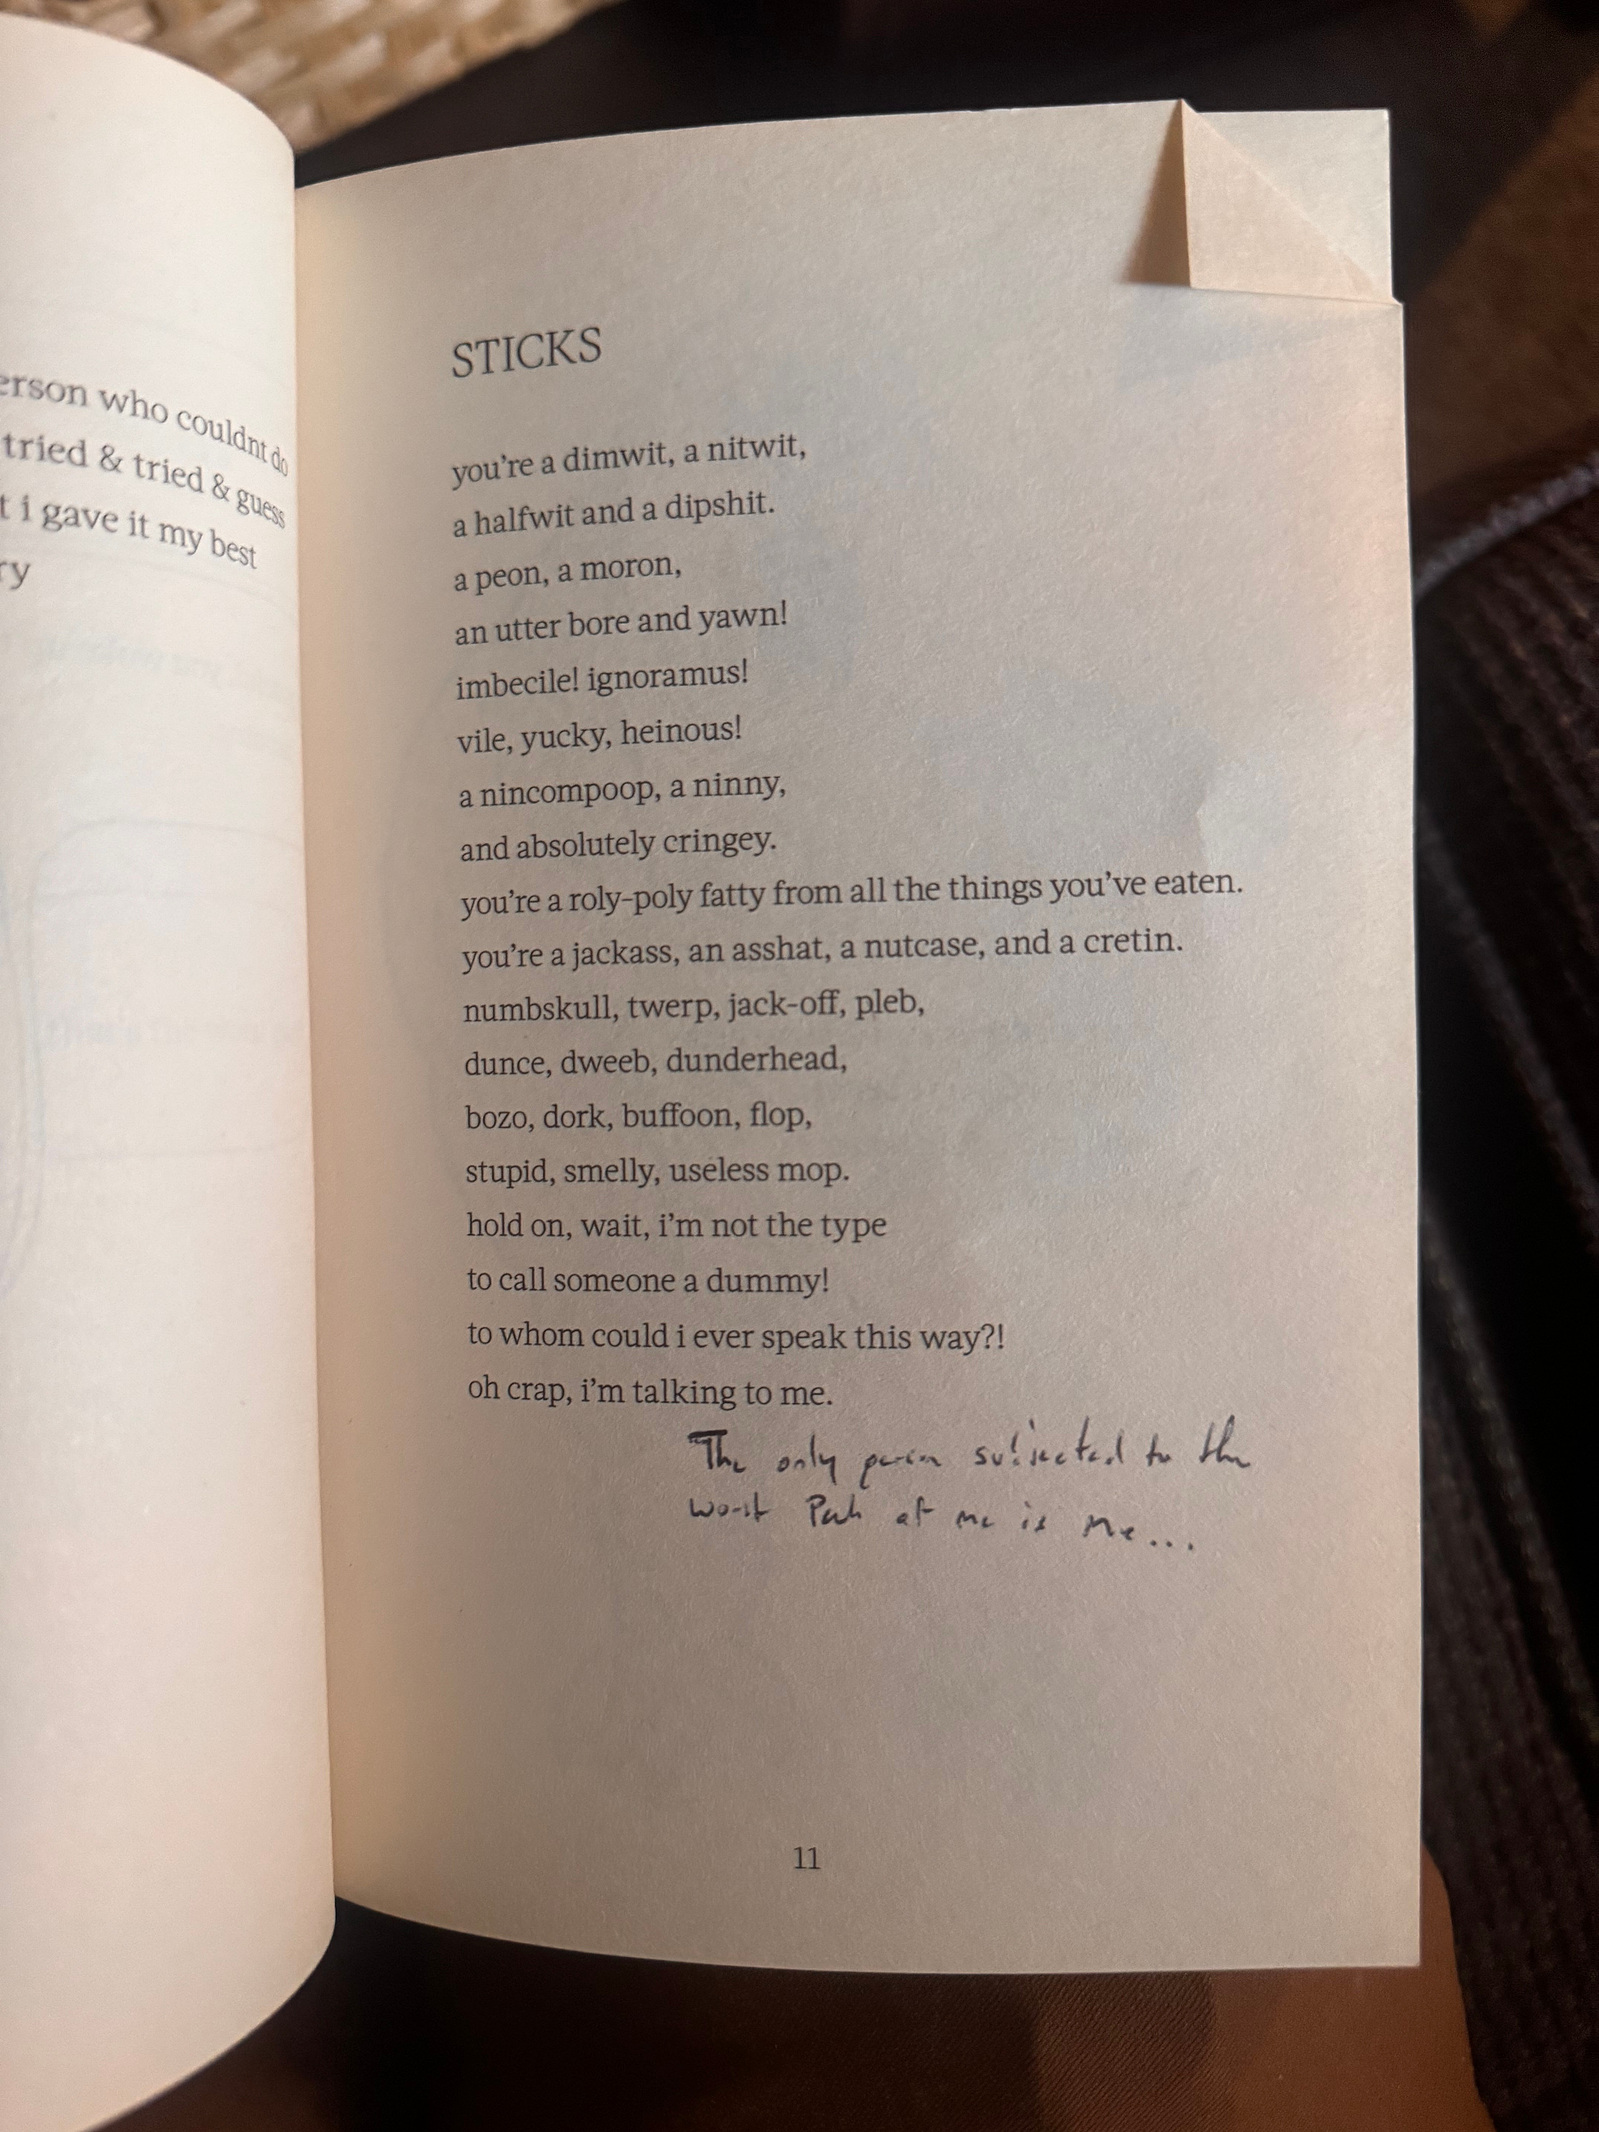 erson who couldnt do
tried & tried & guess
t i gave it my best
ry
STICKS
you're a dimwit, a nitwit,
a halfwit and a dipshit.
a peon, a moron,
an utter bore and yawn!
imbecile! ignoramus!
vile, yucky, heinous!
a nincompoop, a ninny,
and absolutely cringey.
you're a roly-poly fatty from all the things you've eaten.
you're a jackass, an asshat, a nutcase, and a cretin.
numbskull, twerp, jack-off, pleb,
dunce, dweeb, dunderhead,
bozo, dork, buffoon, flop,
stupid, smelly, useless mop.
hold on, wait, i'm not the type
to call someone a dummy!
to whom could i ever speak this way?!
oh crap, i'm talking to me.
The only person subjected to the
worst Part of me is me...
11